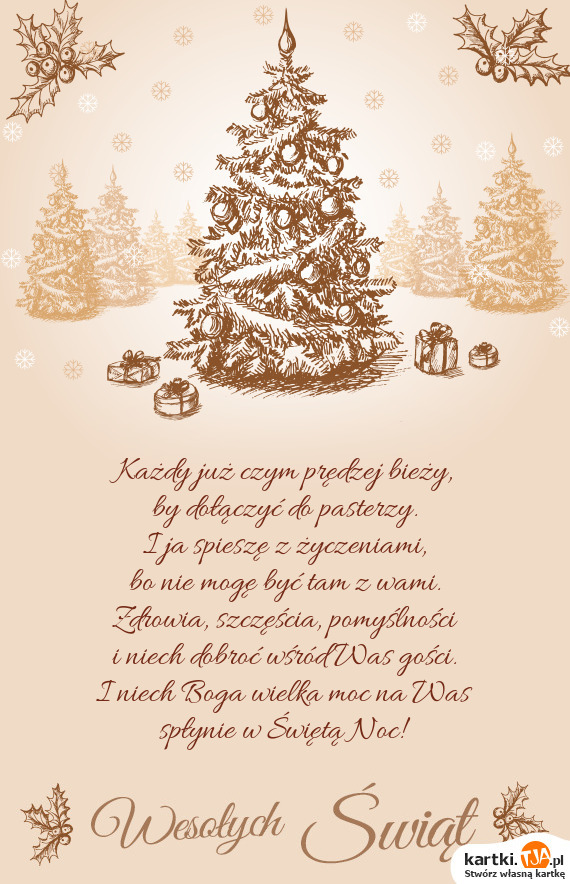 Każdy już czym prędzej bieży,
by dołączyć do pasterzy.
I ja spieszę z życzeniami,
bo nie mogę być tam z wami.
Zdrowia, szczęścia, pomyślności
i niech dobroć wśród Was gości.
I niech Boga wielka moc na Was
spłynie w Świętą Noc!
Wesołych Świąt
kartki.TJA.pl
Stwórz własną kartkę